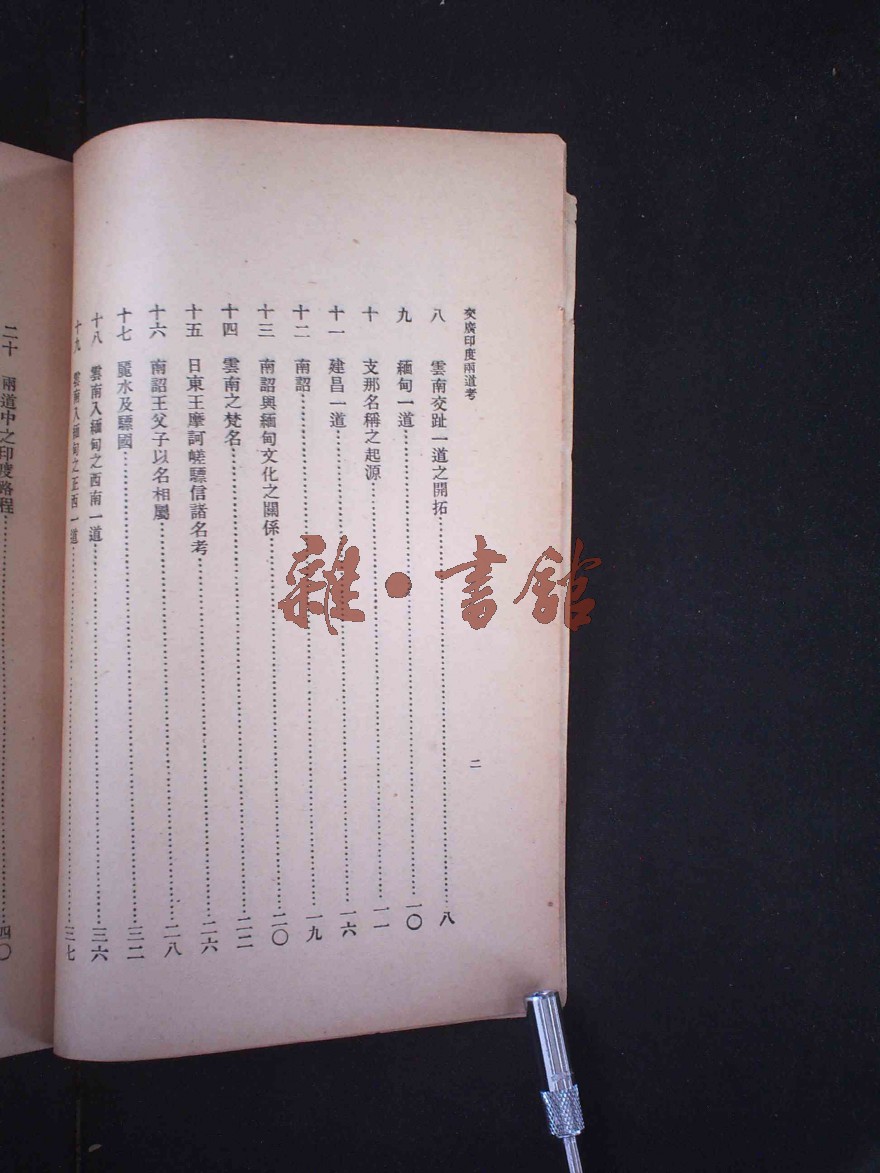 交廣印度兩道考
二
八 雲南交趾一道之開拓……八
九 緬甸一道……一〇
十 支那名稱之起源……一一
十一 建昌一道……一六
十二 南詔……一九
十三 南詔與緬甸文化之關係……二〇
十四 雲南之梵名……二二
十五 日東王摩訶嵯驃信諸名考……二六
十六 南詔王父子以名相屬……二八
十七 麗水及驃國……三二
十八 雲南入緬甸之西南一道……三六
十九 雲南入緬甸之正西一道……三七
二十 兩道中之印度路程……四〇
雜·書館